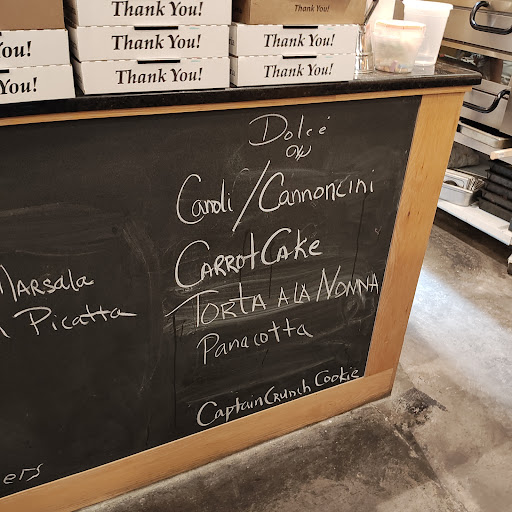 Thank You!
Thank You!
Thank You!
Thank You!
Thank You!
You!
Thank You!
Thank You!
You!
Thank You!
Dolcé
Canoli/Cannoncini
Carrot Cake
Torta a la Nonna
Panacotta
Captain Crunch Cookie
Marsala
Picatta
ers